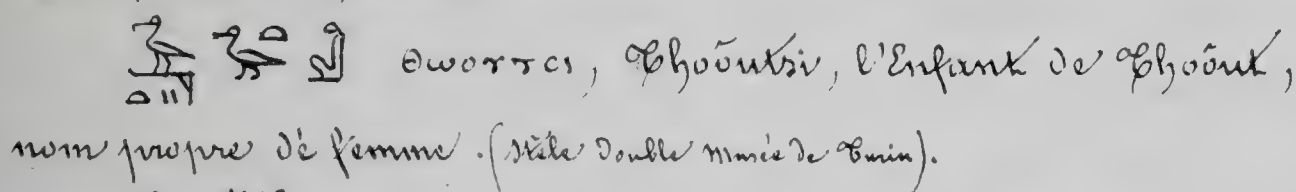 Ⲑⲱⲟⲩⲧⲥⲓ, Thoôutsi, l'Enfant de Thoôut,
nom propre de femme. (Stèle double musée de Turin).